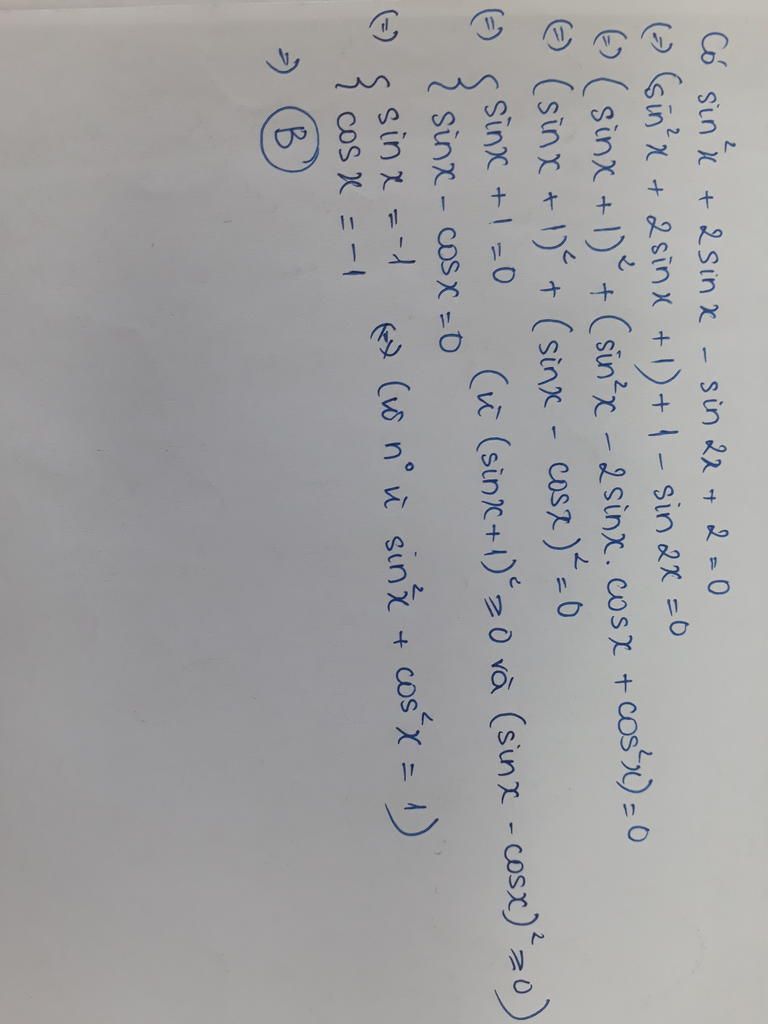 Có sin²x + 2sinx - sin2x + 2 = 0
(=) (sin²x + 2sinx + 1) + 1 - sin2x = 0
(=) (sinx + 1)² + (sin²x - 2sinx.cosx + cos²x) = 0
(=) (sinx + 1)² + (sinx - cosx)² = 0
(=) { sinx + 1 = 0 (vì (sinx+1)² ⩾ 0 và (sinx - cosx)² ⩾ 0)
sinx - cosx = 0
(=) { sinx = -1 (=) (vô n° vì sin²x + cos²x = 1)
cosx = -1
=) B